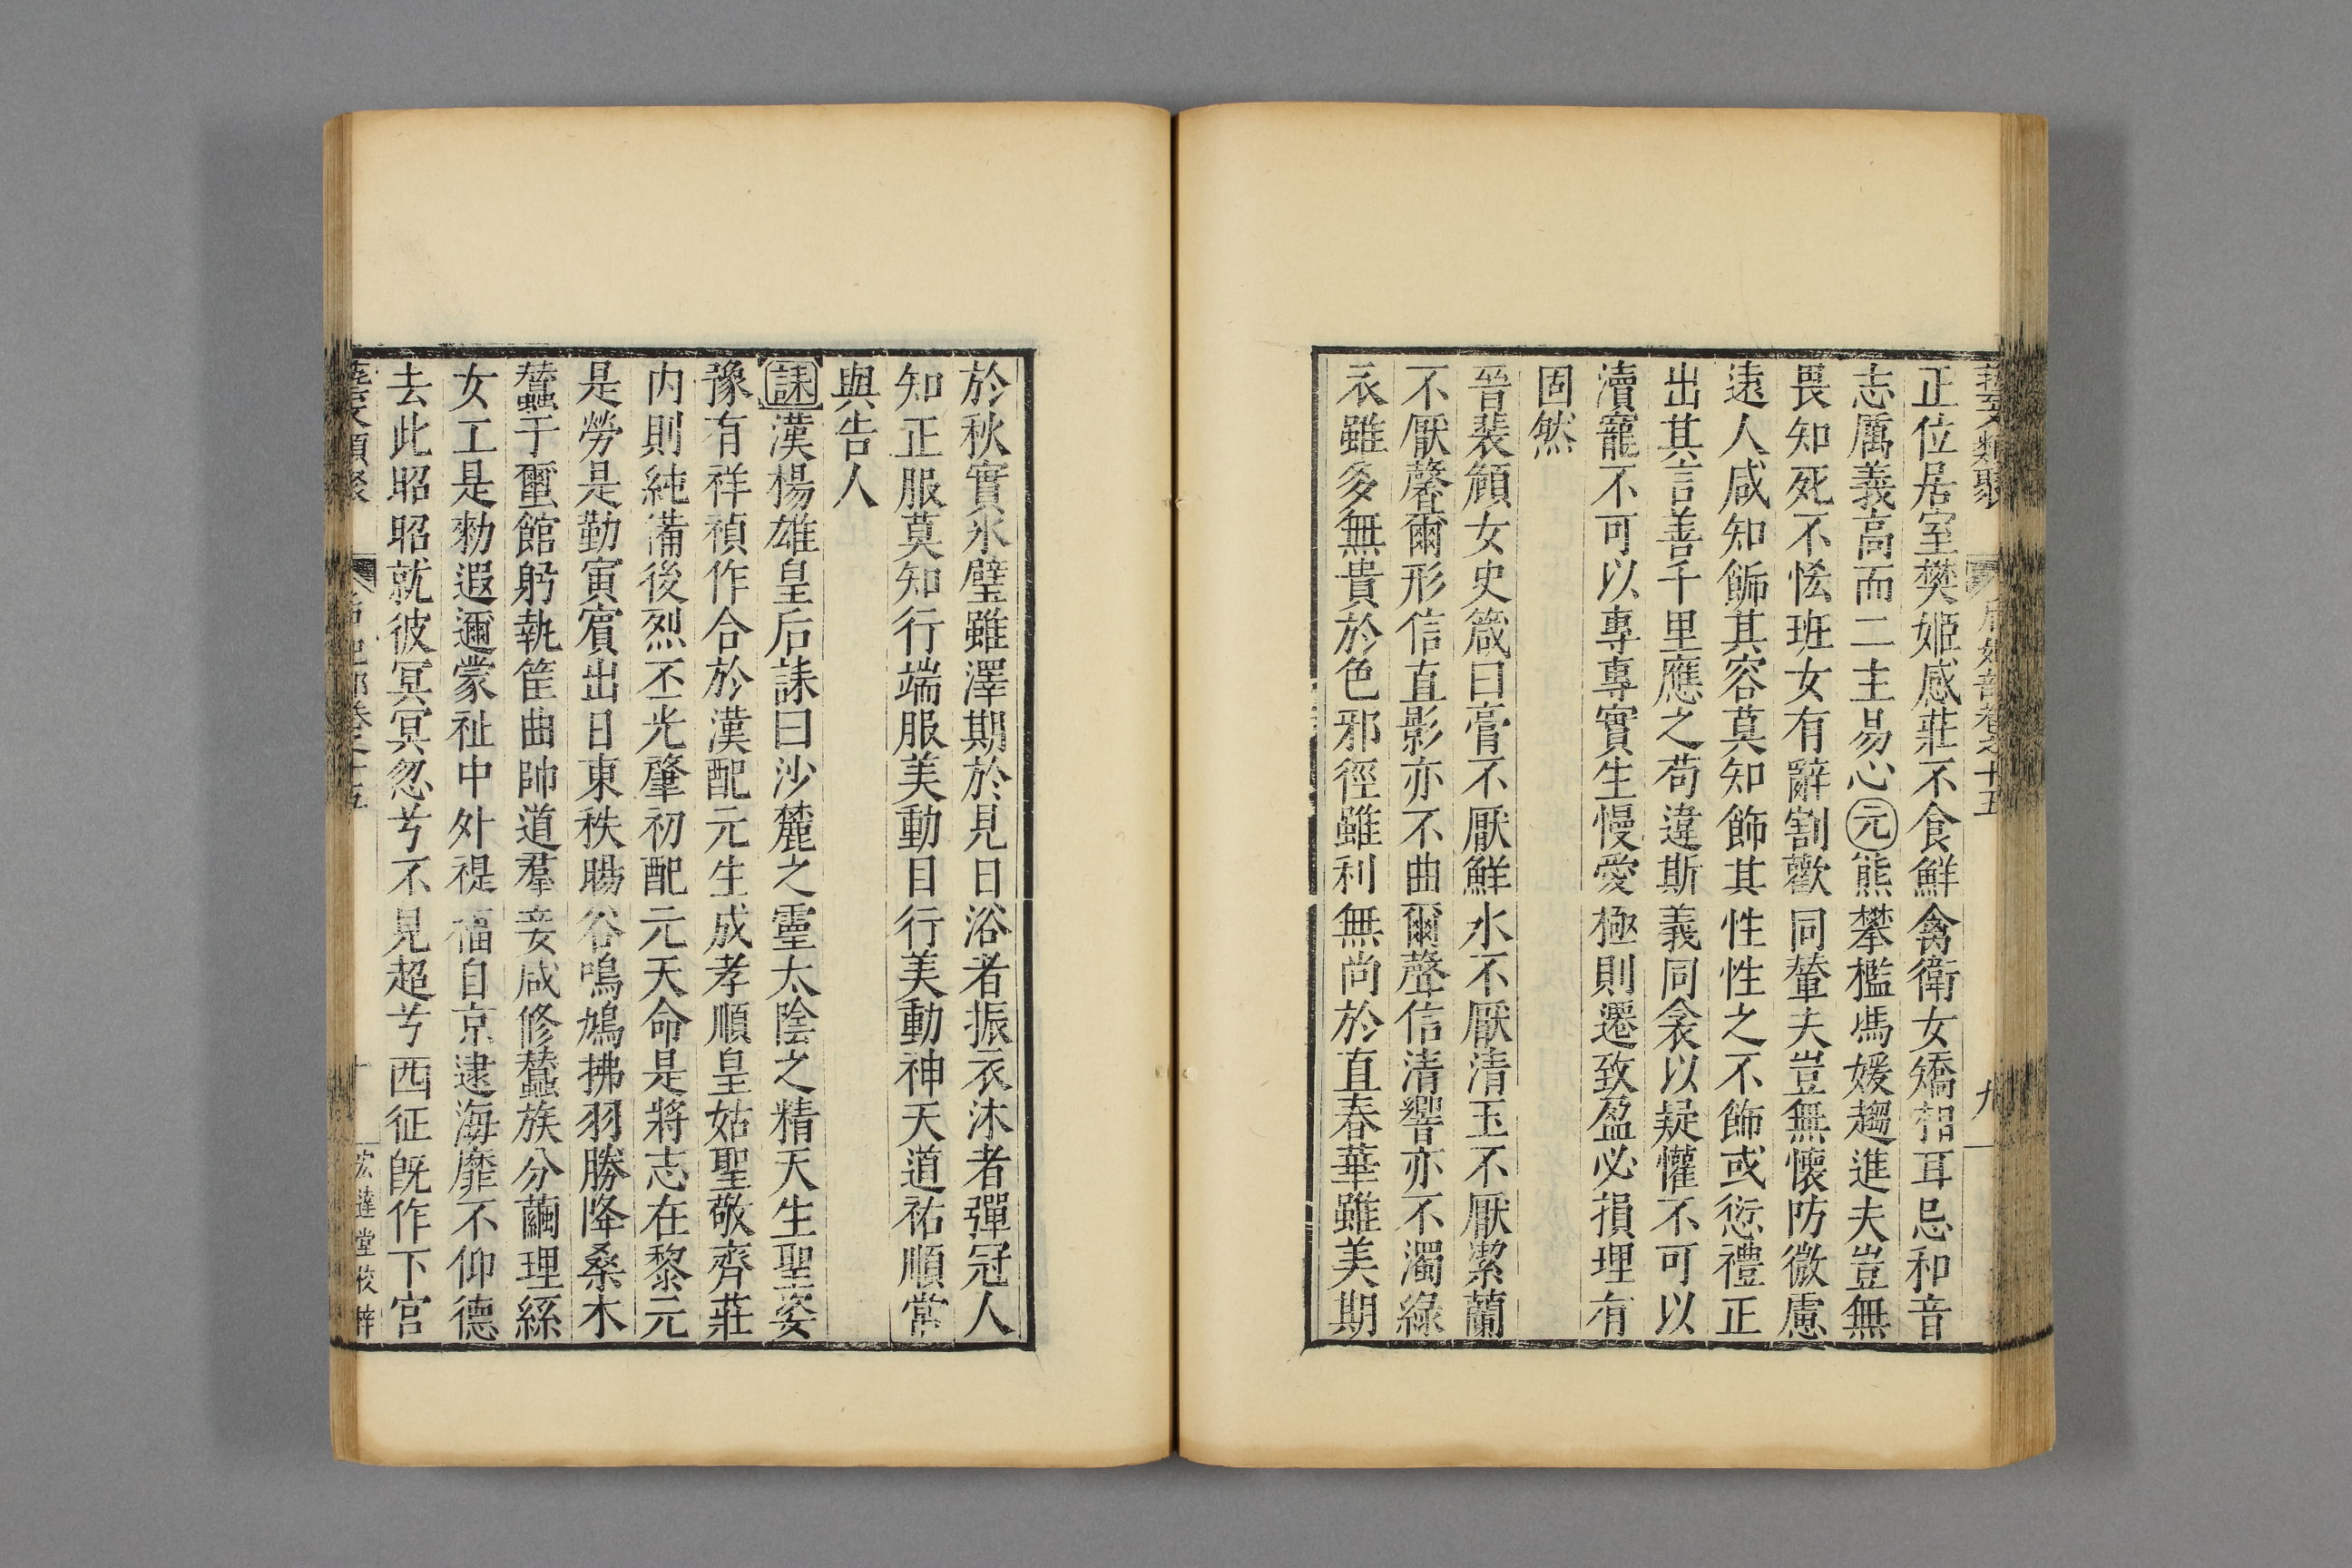 正位居室樊姬感莊不食鮮禽衛女矯桓耳忌和音
志厲義高而二主易心元熊攀檻馮媛趨進夫豈無
畏知死不恡班女有辭割歡同輦夫豈無懷防微慮
遠人咸知飾其容莫知飾其性性之不飾或愆禮正
出其言善千里應之苟違斯義同衾以疑懽不可以
瀆寵不可以專專實生慢愛極則遷致盈必損理有
固然
晉裴頠女史箴曰膏不厭鮮水不厭清玉不厭潔蘭
不厭馨爾形信直影亦不曲爾聲信清響亦不濁綠
衣雖多無貴於色邪徑雖利無尚於直春華雖美期
於秋實氷璧雖澤期於見日浴者振衣沐者彈冠人
知正服莫知行端服美動目行美動神天道祐順常
與吉人
誄漢楊雄皇后誄曰沙麓之靈太陰之精天生聖姿
豫有祥禎作合於漢配元生成孝順皇姑聖敬齊莊
内則純備後烈丕光肇初配元天命是將志在黎元
是勞是勤寅賔出日東秩暘谷鳴鳩拂羽勝降桑木
蠶于蠒館躬執筐曲帥道羣妾咸修蠶族分繭理絲
女工是勑遐邇蒙祉中外禔福自京逮海靡不仰德
去此昭昭就彼冥冥忽兮不見超兮西征旣作下宫
藝文類聚 后妃部卷之十五 十 宏達堂校梓